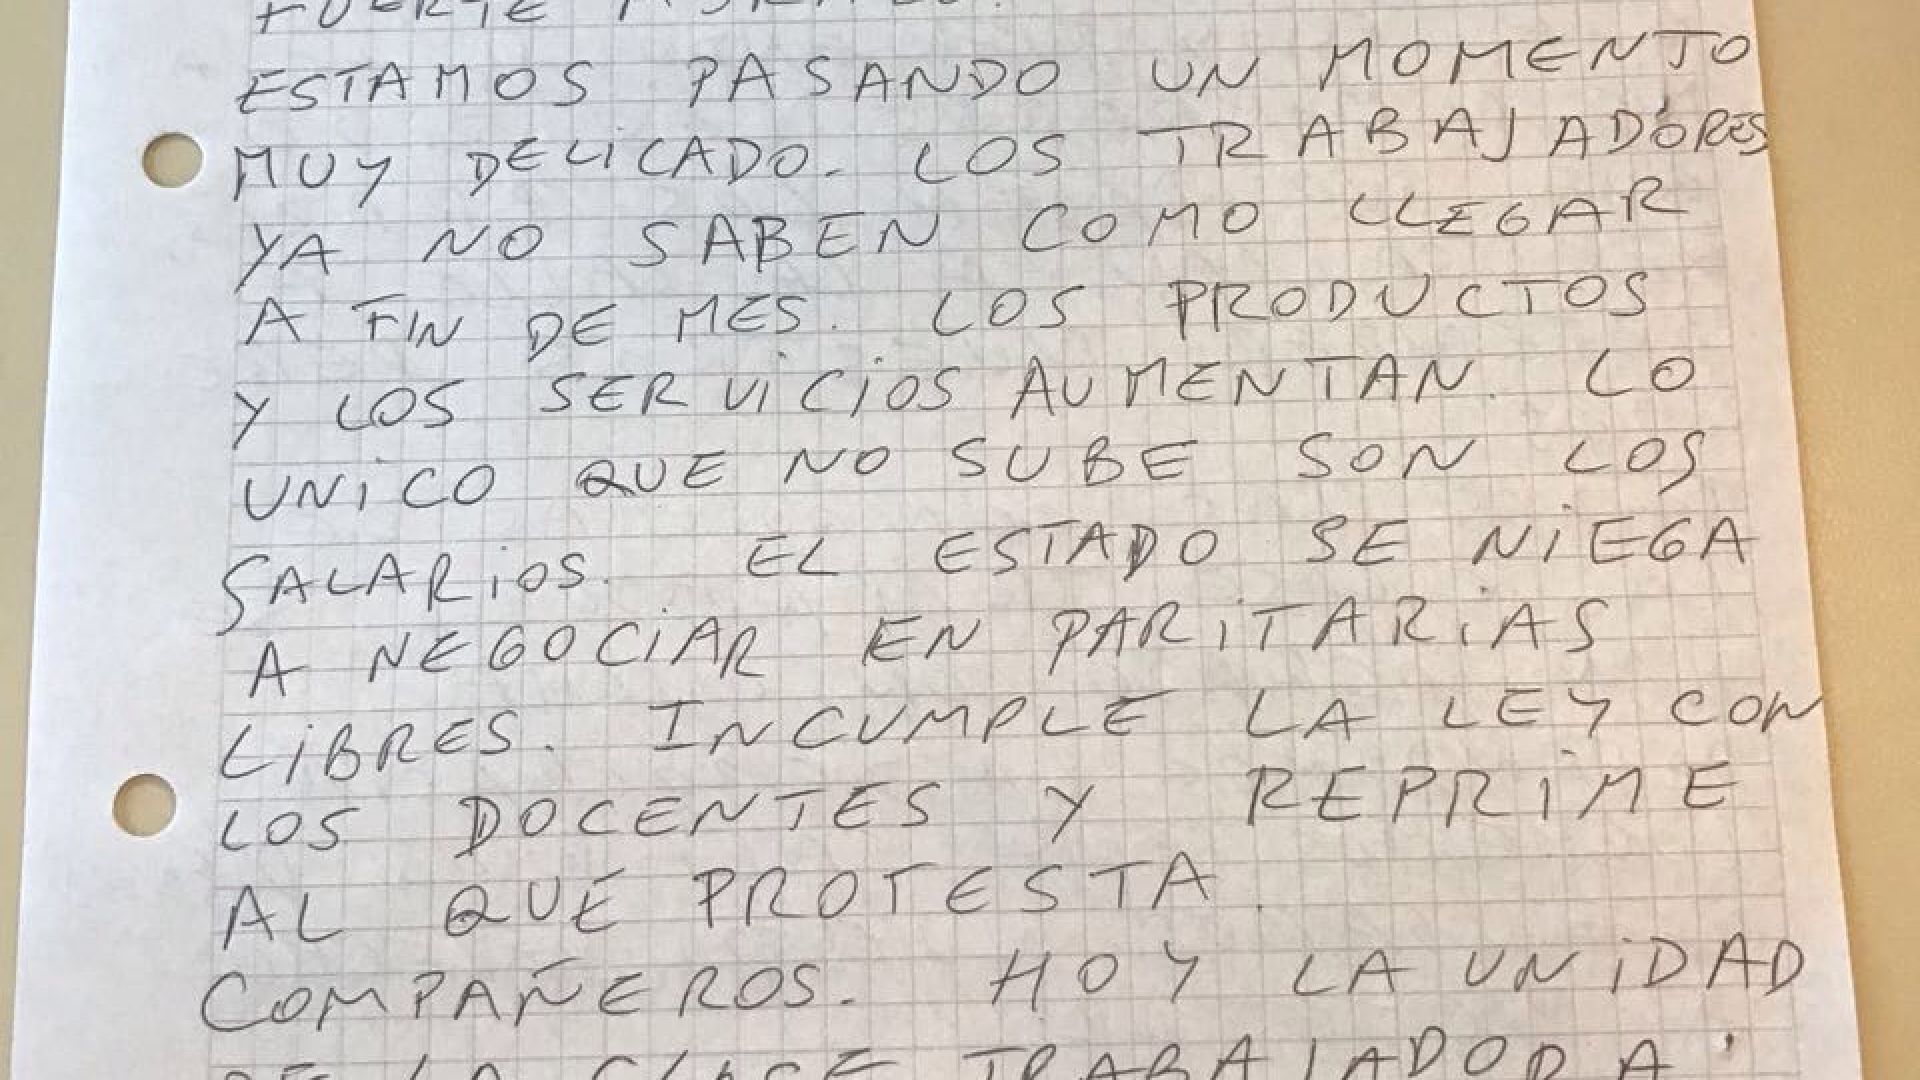 FUERTE
ESTAMOS PASANDO UN MOMENTO
MUY DELICADO. LOS TRABAJADORES
YA NO SABEN COMO LLEGAR
A FIN DE MES. LOS PRODUCTOS
Y LOS SERVICIOS AUMENTAN. LO
UNICO QUE NO SUBE SON LOS
SALARIOS. EL ESTADO SE NIEGA
A NEGOCIAR EN PARITARIAS
LIBRES. INCUMPLE LA LEY CON
LOS DOCENTES Y REPRIME
AL QUE PROTESTA.
COMPAÑEROS. HOY LA UNIDAD
DE LA CLASE TRABAJADORA